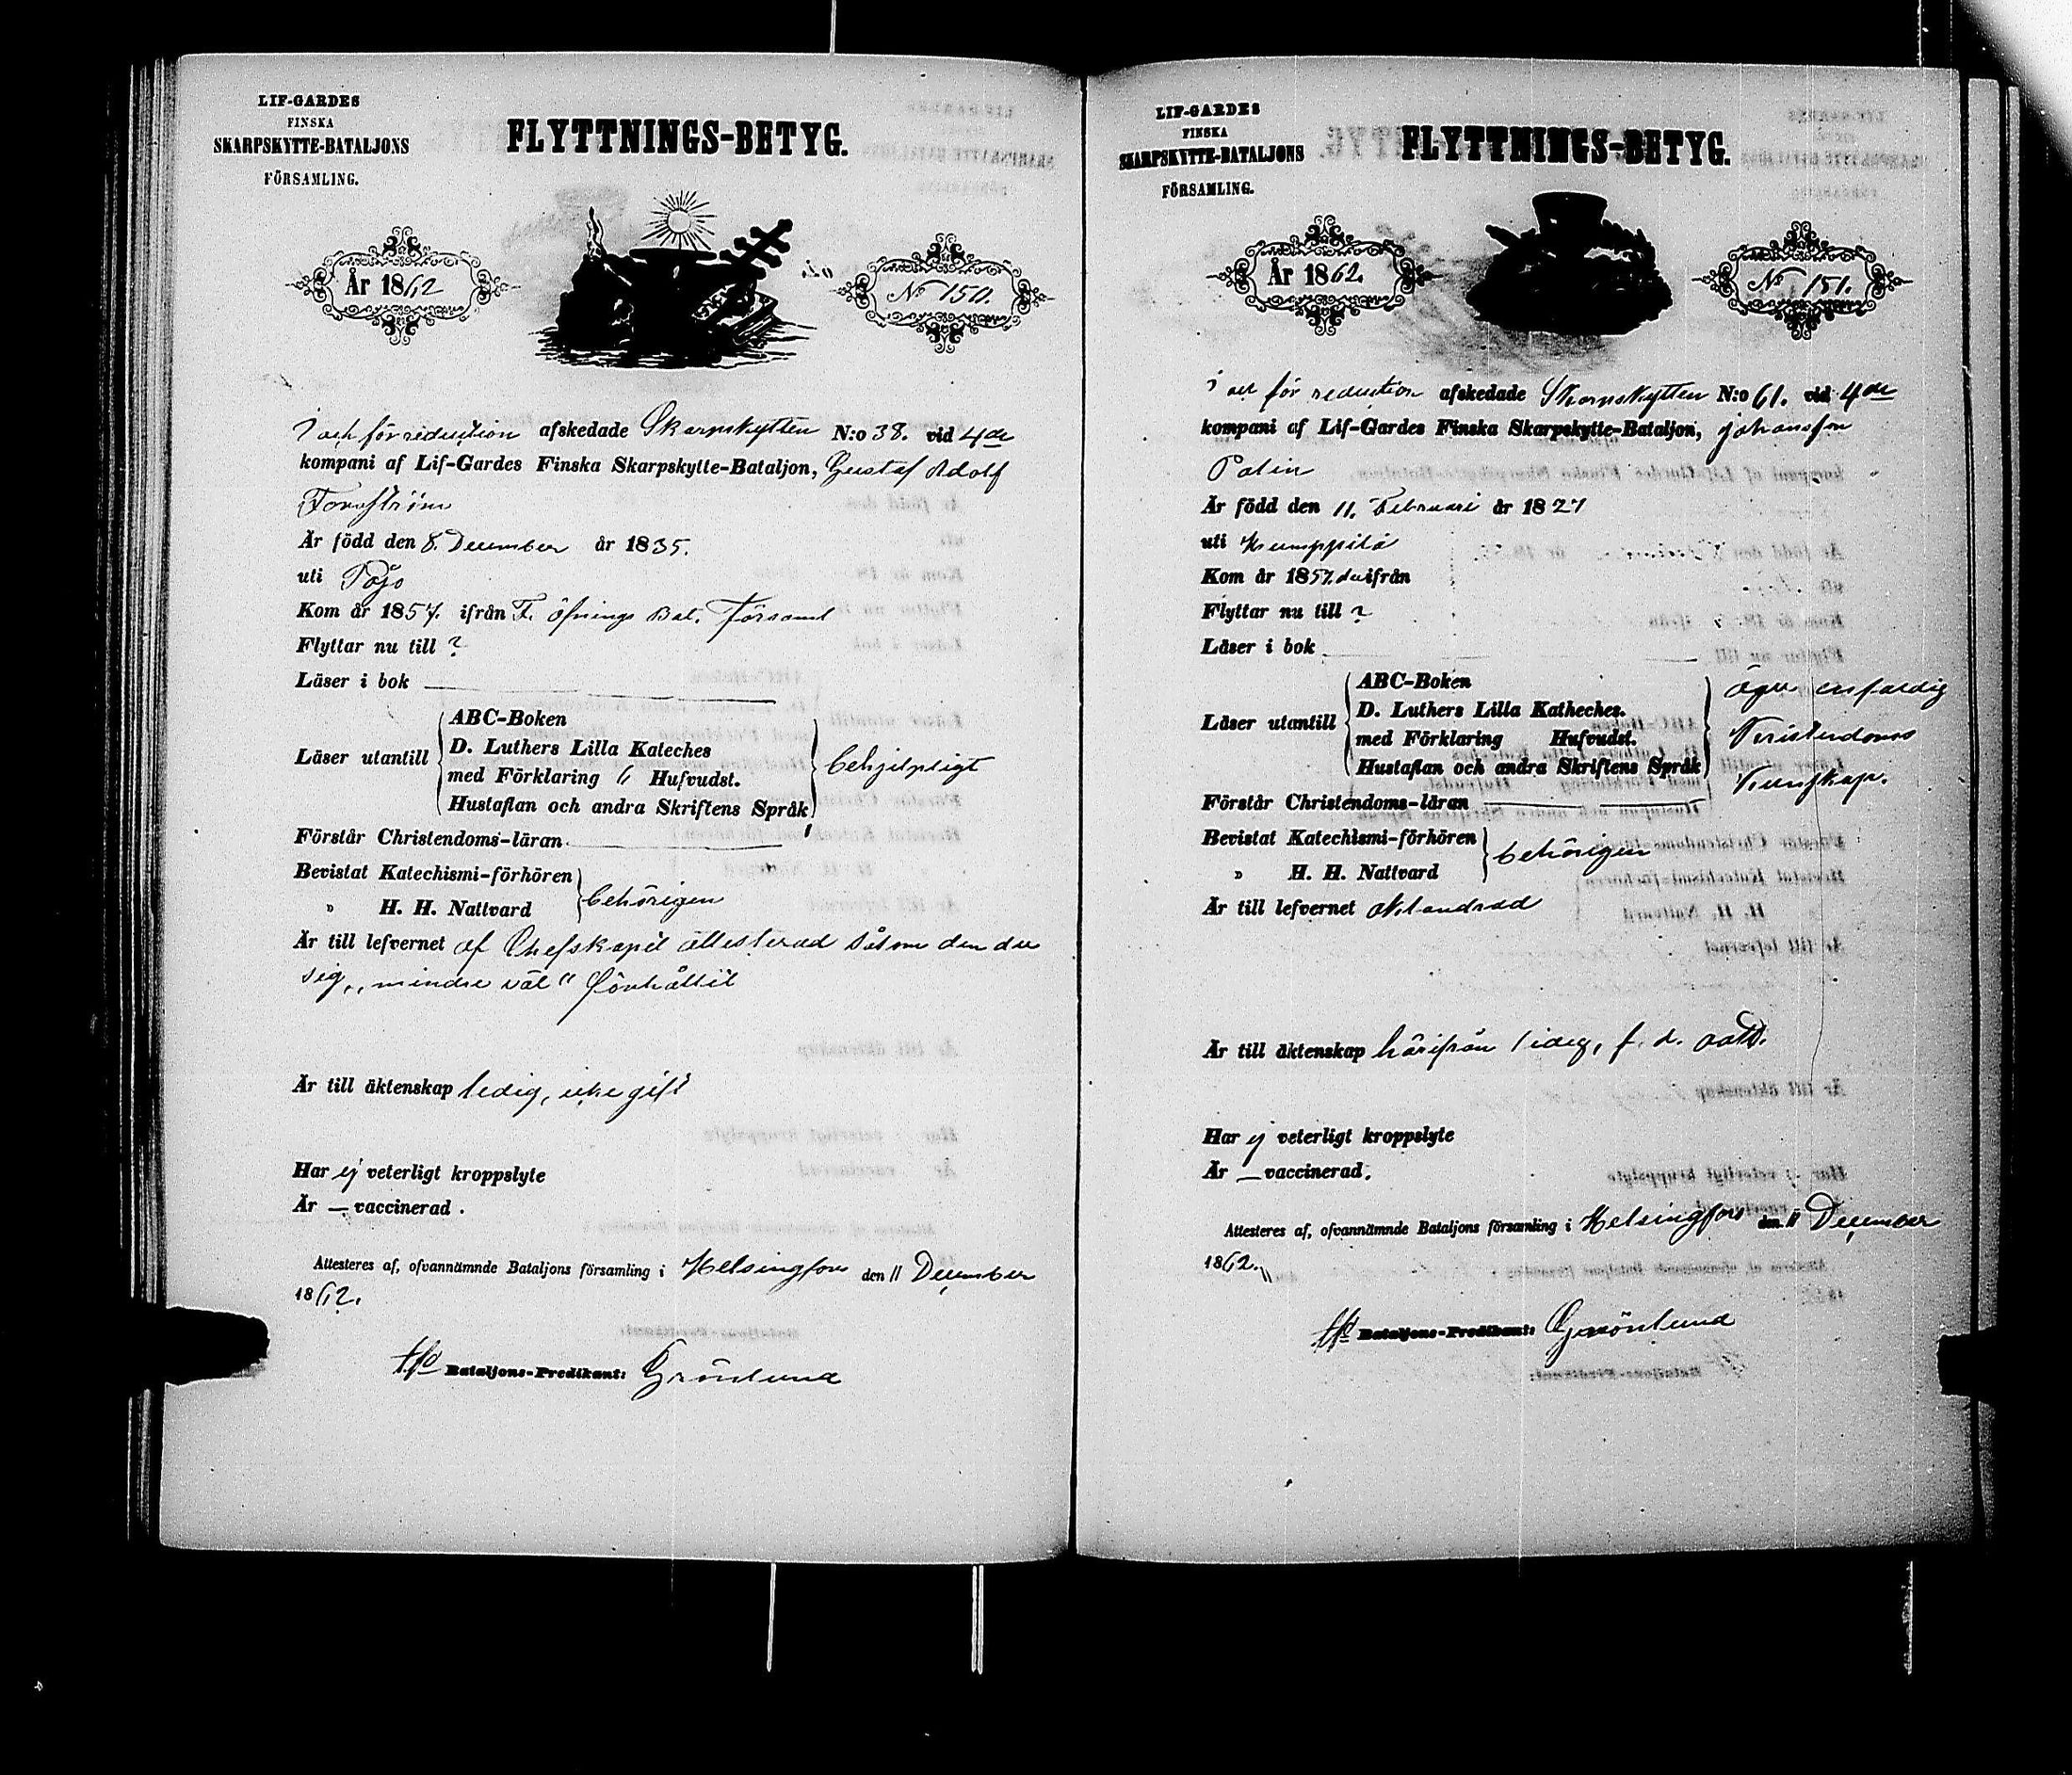 LIF-GARDES
FINSKA
SKARPSKYTTE-BATALJONS
FÖRSAMLING.
FLYTTNINGS-BETYG.
År 1862
No 150.
I och för reduction afskedade Skarpskytten N:o 38. vid 4de
kompani af Lif-Gardes Finska Skarpskytte-Bataljon, Gustaf Adolf
Fornström
Är född den 8. December år 1835.
uti Pojo
Kom år 1857. ifrån F. öfnings Bat. Församl
Flyttar nu till ?
Läser i bok
Läser utantill
ABC-Boken
D. Luthers Lilla Kateches
med Förklaring 6 Hufvudst.
Hustaflan och andra Skriftens Språk
behjelpligt
Förstår Christendoms-läran
Bevistat Katechismi-förhören
" H. H. Nattvard
behörigen
Är till lefvernet af Chefskapet attesterad såsom den der
sig „mindre väl" förhållit
Är till äktenskap ledig, icke gift
Har ej veterligt kroppslyte
Är — vaccinerad.
Attesteres af, ofvannämnde Bataljons församling i Helsingfors den 11 December
1862.
Bataljons-Predikant: Grönlund
LIF-GARDES
FINSKA
SKARPSKYTTE-BATALJONS
FÖRSAMLING.
FLYTTNINGS-BETYG.
År 1862.
No 151.
I och för reduction afskedade Skarpskytten N:o 61. vid 4de
kompani af Lif-Gardes Finska Skarpskytte-Bataljon, Johansson
Palin
Är född den 11. Februari år 1827
uti Kumppila
Kom år 1857. ifrån
Flyttar nu till ?
Läser i bok
Läser utantill
ABC-Boken
D. Luthers Lilla Katheches.
med Förklaring Hufvudst.
Hustaflan och andra Skriftens Språk
äger enfaldig
Kristendoms
kunskap.
Förstår Christendoms-läran
Bevistat Katechismi-förhören
" H. H. Nattvard
behörigen
Är till lefvernet oklandrad
Är till äktenskap härifrån ledig, f. d.
Har ej veterligt kroppslyte
Är — vaccinerad.
Attesteres af, ofvannämnde Bataljons församling i Helsingfors den 11 December
1862.
Bataljons-Predikant: Grönlund